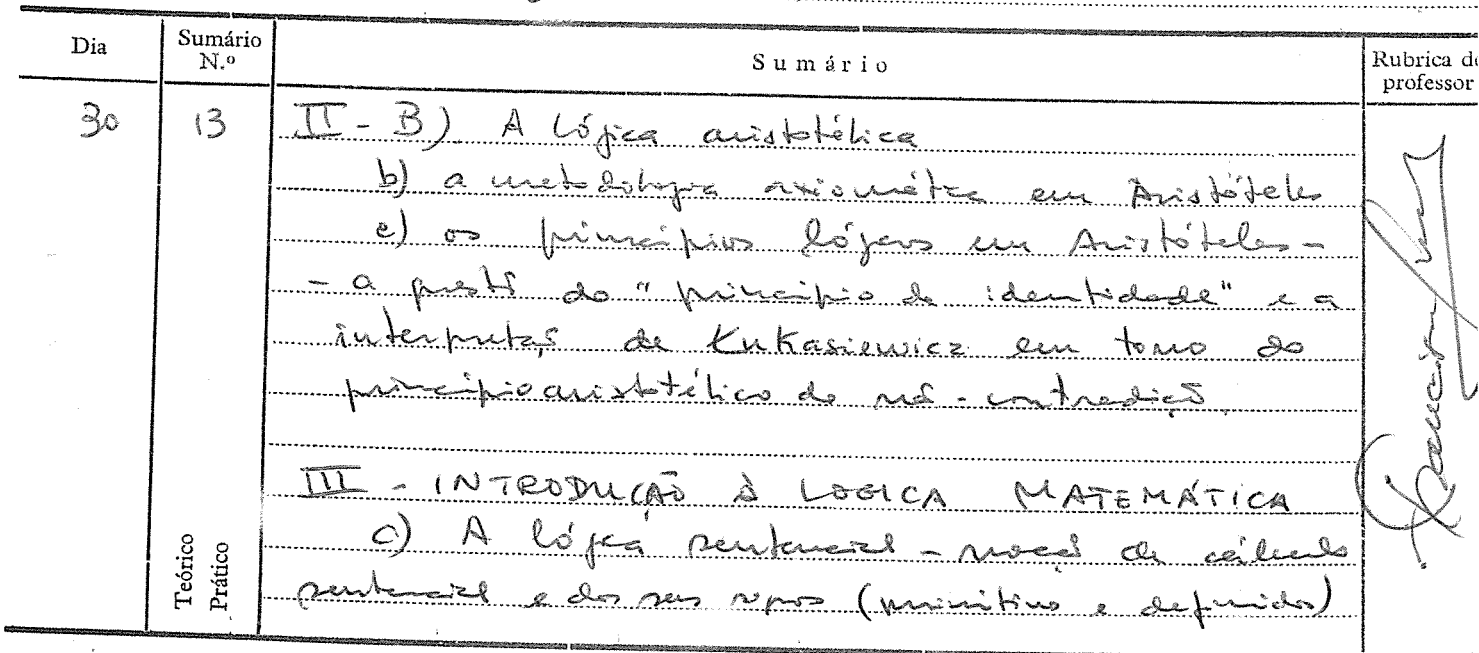 Dia
Sumário N.º
Sumário
Rubrica do professor
30
13
II - B) A Lógica aristotélica
b) a metodologia axiomática em Aristóteles
c) os princípios lógicos em Aristóteles -
- a questã do "princípio de identidade" e a
interpretaçã de Łukasiewicz em torno do
princípio aristotélico de nã-contradiçã.
III - INTRODUÇÃO À LOGICA MATEMÁTICA
c) A lógica sentencial - noçã de cálculo
sentencial e dos seus signos (primitivos e definidos)
Teórico
Prático